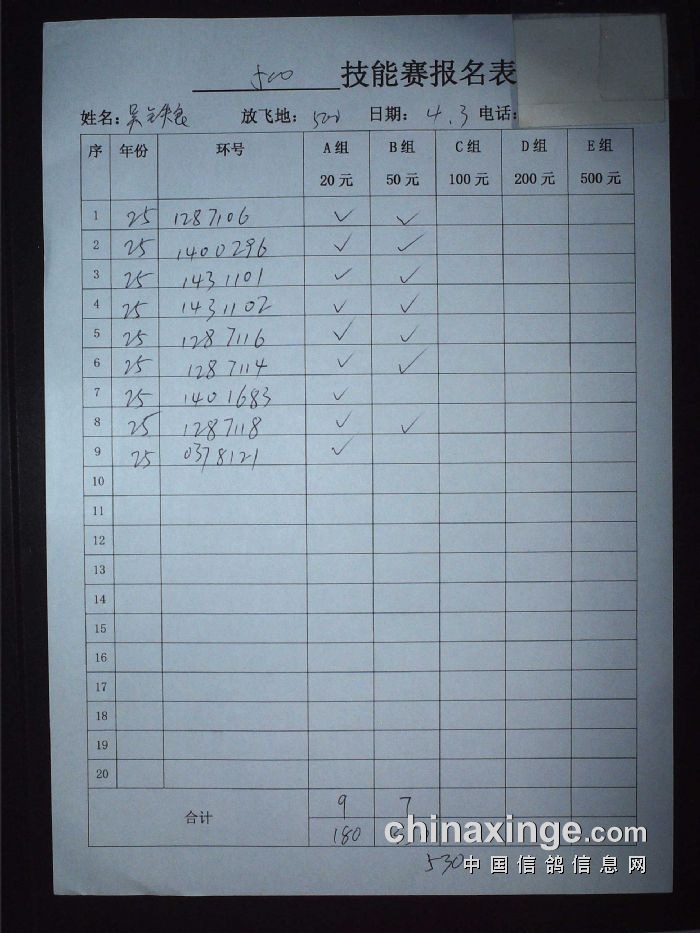 500 技能赛报名表
姓名: 吴 良 放飞地: 500 日期: 4.3 电话:
序 年份 环号 A组 B组 C组 D组 E组
20元 50元 100元 200元 500元
1 25 1287106 ✓ ✓
2 25 1400296 ✓ ✓
3 25 1431101 ✓ ✓
4 25 1431102 ✓ ✓
5 25 1287116 ✓ ✓
6 25 1287114 ✓ ✓
7 25 1401683 ✓
8 25 1287118 ✓ ✓
9 25 0378121 ✓
10
11
12
13
14
15
16
17
18
19
20
合计 9 7
180
530
chinaxinge.com
中国信鸽信息网